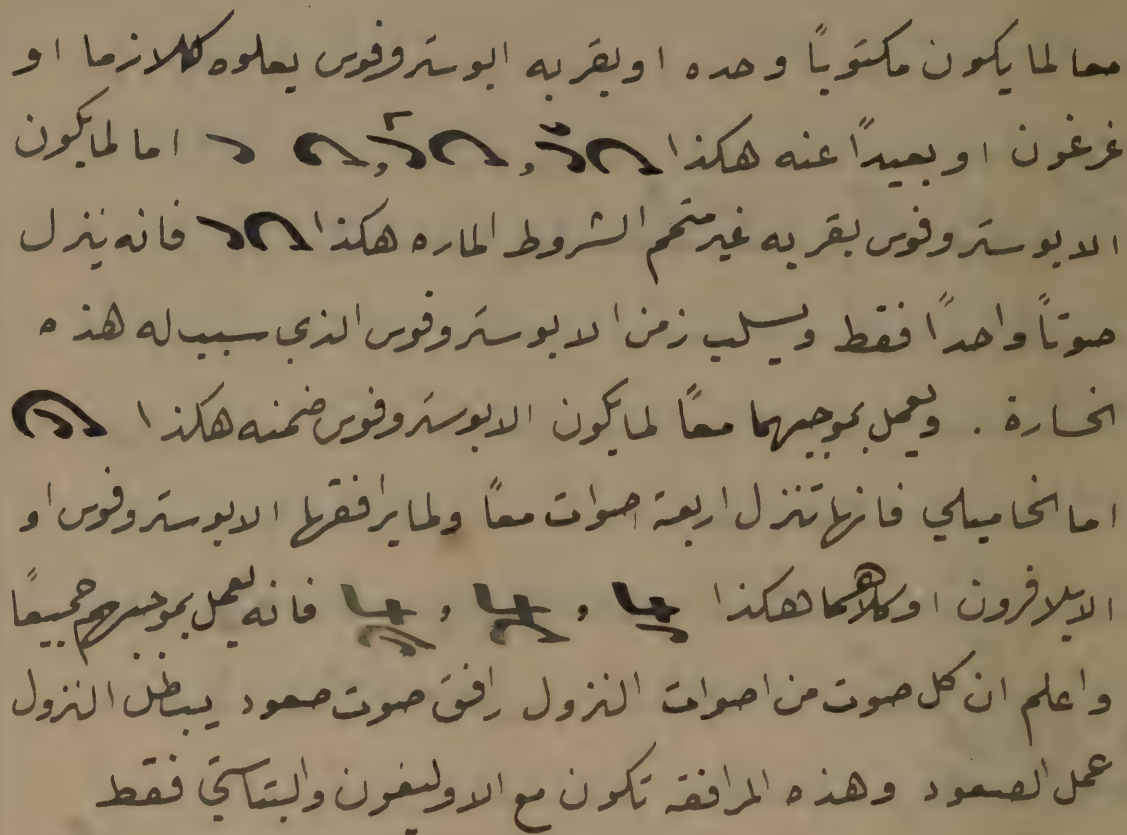 معا لما يكون مكتوبًا وحده او بقربه ابوستروفوس يعلوه كلازما او
غرغون او بعيدًا عنه هكذا اما لما يكون
الابوستروفوس بقربه غير متمم الشروط الماره هكذا فانه ينزل
صوتًا واحدًا فقط ويسلب زمن الابوستروفوس الذي سبب له هذه
الخسارة . ويعمل بموجبهما معًا لما يكون الابوستروفوس ضمنه هكذا
اما الخاميلي فانها تنزل اربعة اصوات معًا ولما يرافقها الابوستروفوس او
الايلافرون او كلاهما هكذا فانه يعمل بموجبهم جميعًا
واعلم ان كل صوت من اصوات النزول رافق صوت صعود يبطل النزول
عمل الصعود وهذه المرافقه تكون مع الاوليغون والبتاستي فقط